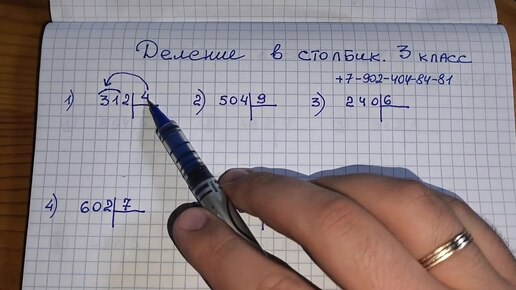 Деление в столбик. 3 класс
+7-902-404-84-81
1) 312 4 2) 504 9 3) 240 6
4) 602 7